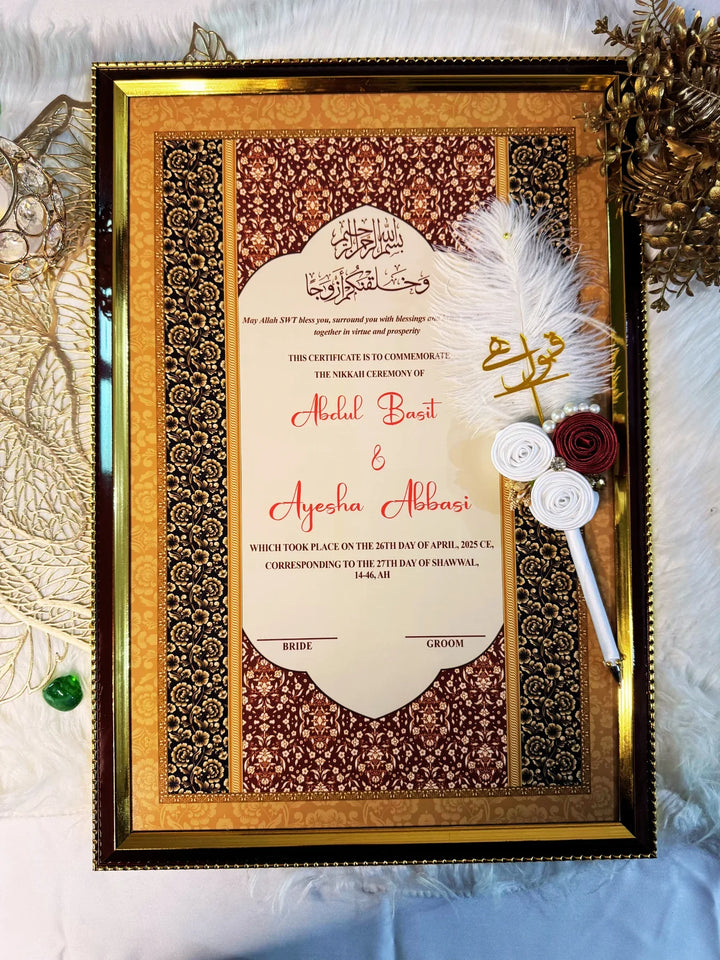 بسم الله الرحمن الرحيم
وَخَلَقْنَٰكُمْ أَزْوَٰجًا
May Allah SWT bless you, surround you with blessings
together in virtue and prosperity
THIS CERTIFICATE IS TO COMMEMORATE
THE NIKKAH CEREMONY OF
Abdul Basit
&
Ayesha Abbasi
WHICH TOOK PLACE ON THE 26TH DAY OF APRIL, 2025 CE,
CORRESPONDING TO THE 27TH DAY OF SHAWWAL,
14-46, AH
BRIDE
GROOM
قبول ہے